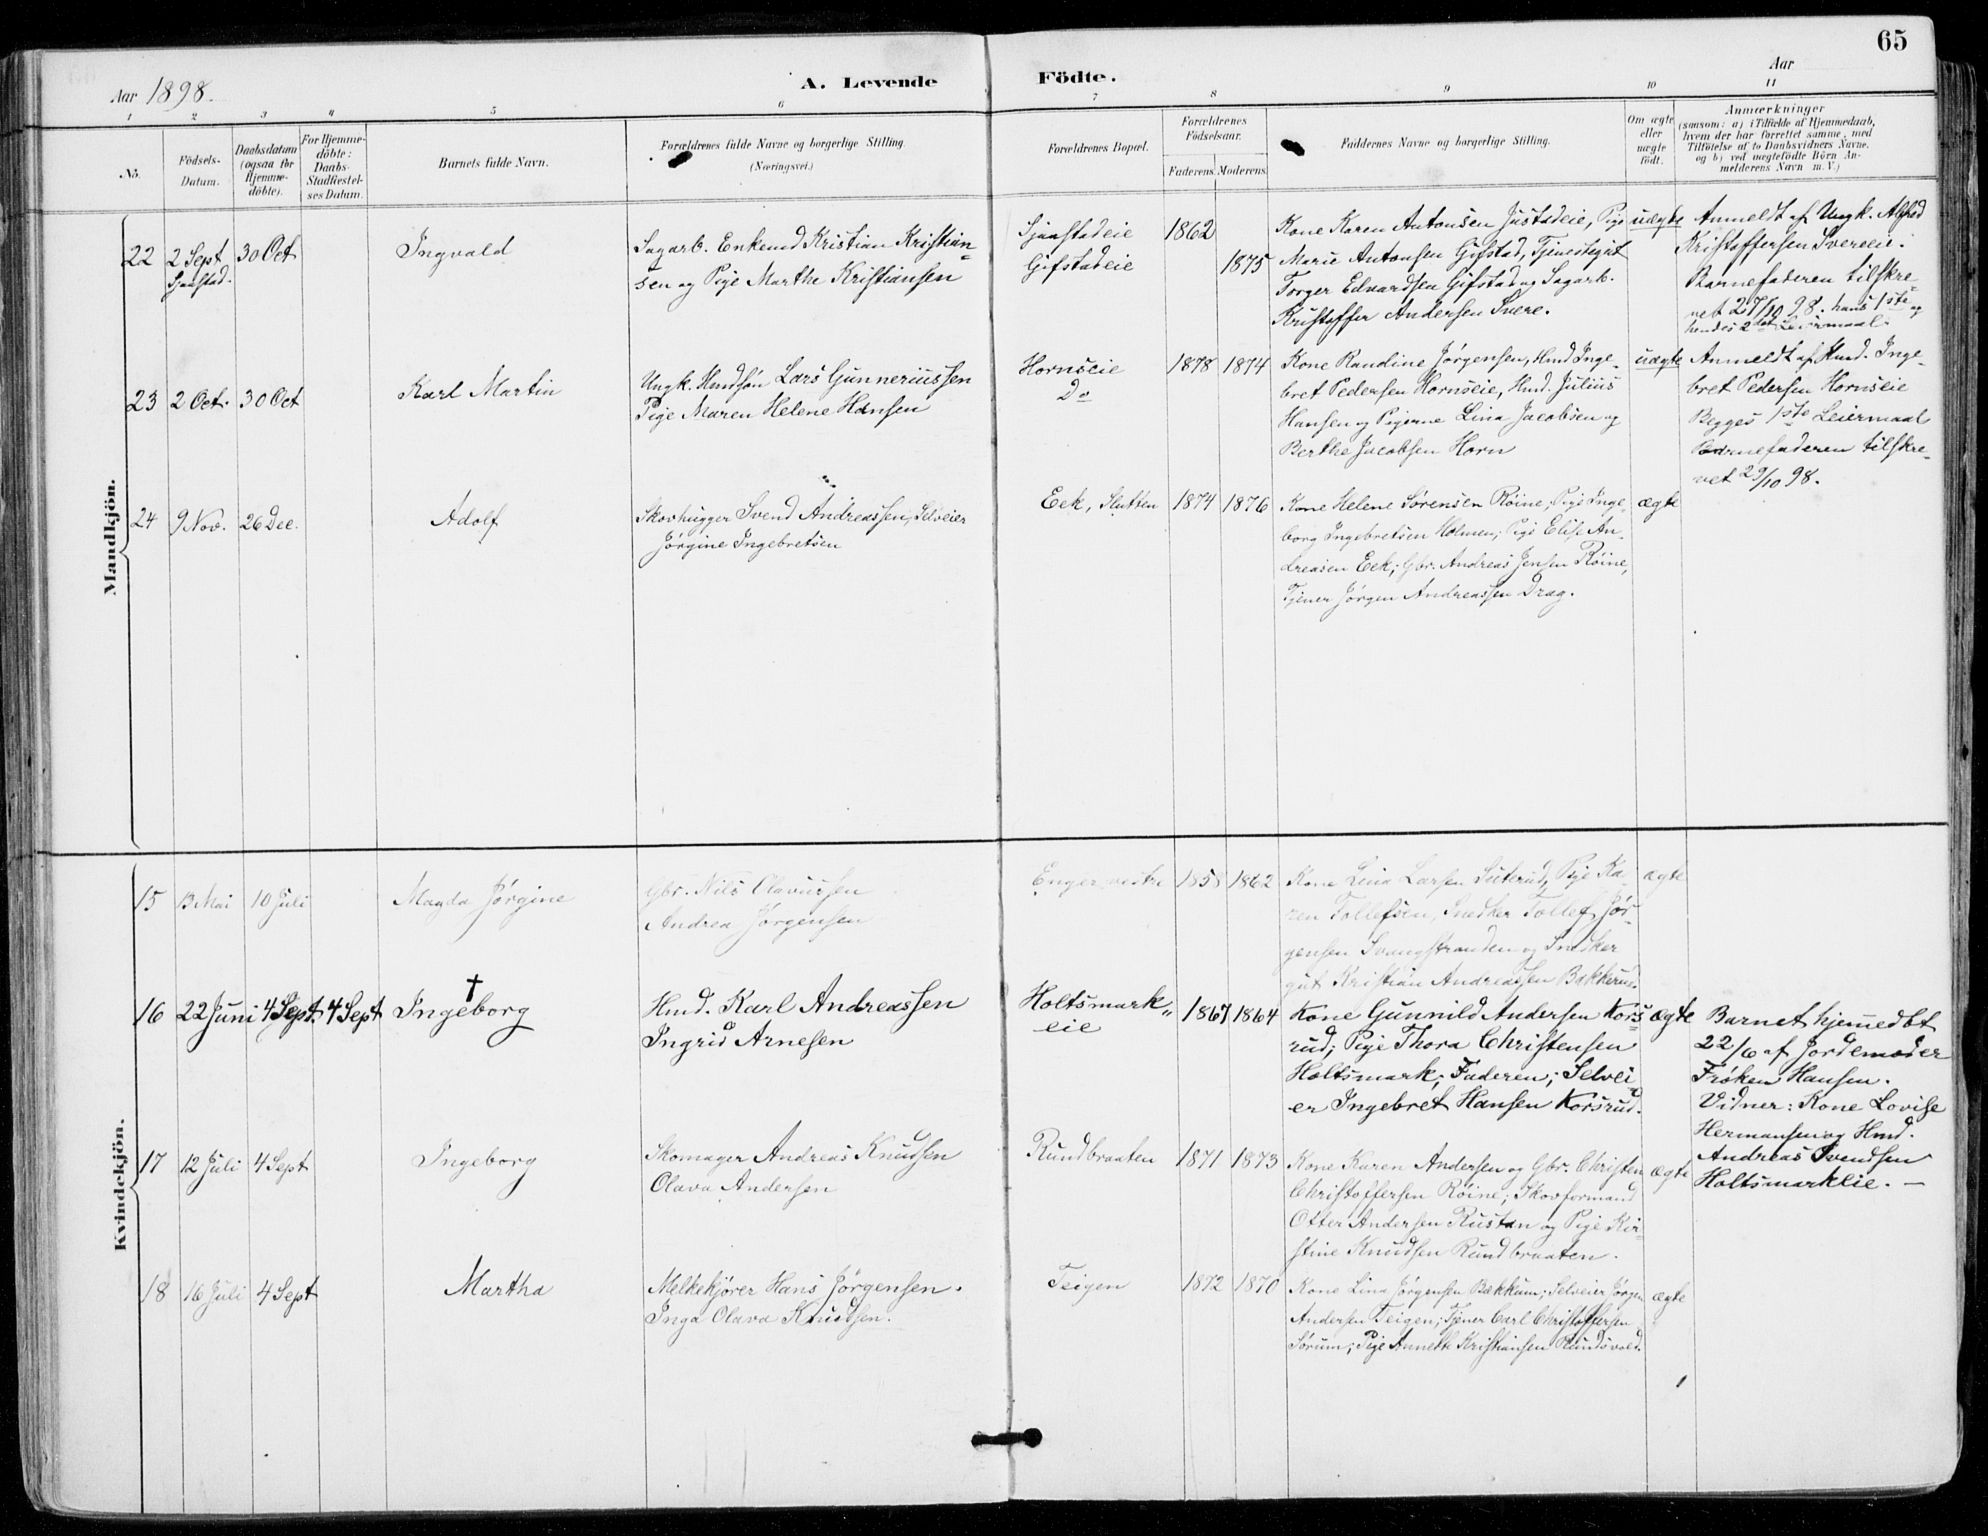 65
Aar 1898.
A. Levende Födte.
Aar
1 2 3 4 5 6 7 8 9 10 11
No.
Födsels-
Datum.
Daabsdatum
(ogsaa for
Hjemme-
döbte).
For Hjemme-
döbte:
Daabs-
Stadfæstel-
ses Datum.
Barnets fulde Navn.
Forældrenes fulde Navne og borgerlige Stilling.
(Næringsvei.)
Forældrenes Bopæl.
Forældrenes
Födselsaar.
Faderens. Moderens.
Faddernes Navne og borgerlige Stilling.
Om ægte
eller
uægte
födt.
Anmærkninger
(saasom: a) i Tilfælde af Hjemmedaab,
hvem der har forrettet samme, med
Tilföielse af to Daabsvidners Navne.
og b) ved uægtefödte Börn An-
melderens Navn m. V.)
Mandkjön.
22
2 Sept
Sjaastad.
30 Oct
Ingvald
Sagarb. Enkemd Kristian Kristian-
sen og Pige Marthe Kristiansen
Sjaastadeie
Gifstadeie
1862
1875
Kone Karen Antonsen Justadeie, Pige
Marie Antonsen Gifstad, Tjenestegut
Torger Edvardsen Gifstad og Sagarb.
Kristoffer Andersen Svere.
uægte
Anmeldt af Ungk. Alfred
Kristoffersen Svereeie.
Barnefaderen tilskre-
vet 27/10 98. hans 1ste og
hendes 2det Leiermaal.
23
2 Oct.
30 Oct
Karl Martin
Ungk. Hmdsøn Lars Gunneriussen
Pige Maren Helene Hansen
Hornseie
Do
1878
1874
Kone Randine Jørgensen, Hmd Inge-
bret Pedersen Hornseie, Hmd. Julius
Hansen og Pigerne Lina Jacobsen og
Berthe Jacobsen Horn
uægte
Anmeldt af Hmd. Inge-
bret Pedersen Hornseie
Begges 1ste Leiermaal
Barnefaderen tilskre-
vet 29/10 98.
24
9 Nov.
26 Dec.
Adolf
Skovhugger Svend Andreassen, Selveier
Jørgine Ingebretsen
Eek, Slutten
1874
1876
Kone Helene Sørensen Røine, Pige Inge-
borg Ingebretsen Holmen; Pige Elise An-
dreasen Eek; Gbr. Andreas Jensen Røine,
Tjener Jørgen Andreassen Drag.
ægte
Kvindekjön.
15
13 Mai
10 Juli
Magda Jørgine
Gbr. Nils Olavussen
Andrea Jørgensen
Enger vestre
1858
1862
Kone Lina Larsen Suterud, Pige Ka-
ren Tollefsen, Snedker Tollef Jør-
gensen Svangstranden og Snedker
gut Kristian Andreassen Bakkerud.
ægte
16
22 Juni
4 Sept.
4 Sept
†
Ingeborg
Hmd. Karl Andreassen
Ingrid Arnesen
Holtsmark-
eie
1867
1864
Kone Gunnild Andersen Kors-
rud; Pige Thora Christensen
Holtsmark; Faderen; Selvei-
er Ingebret Hansen Korsrud.
ægte
Barnet hjemedbt
22/6 af Jordemoder
Frøken Hansen.
Vidner: Kone Lovise
Hermansen og Hmd.
Andreas Svendsen
Holtsmarkeie. —
17
12 Juli
4 Sept
Ingeborg
Skomager Andreas Knudsen
Olava Andersen
Rundbraaten
1871
1873
Kone Karen Andersen og Gbr. Christen
Christoffersen Røine; Skovformand
Otter Andersen Rustan og Pige Kir-
stine Knudsen Rundbraaten.
ægte
18
16 Juli
4 Sept
Martha
Melkekjører Hans Jørgensen.
Inga Olava Knudsen.
Teigen
1872
1870
Kone Lina Jørgensen Bækkum; Selveier Jørgen
Andersen Teigen; Tjener Carl Christoffersen
Sørum; Pige Annette Kristiansen Rundsvold.
ægte